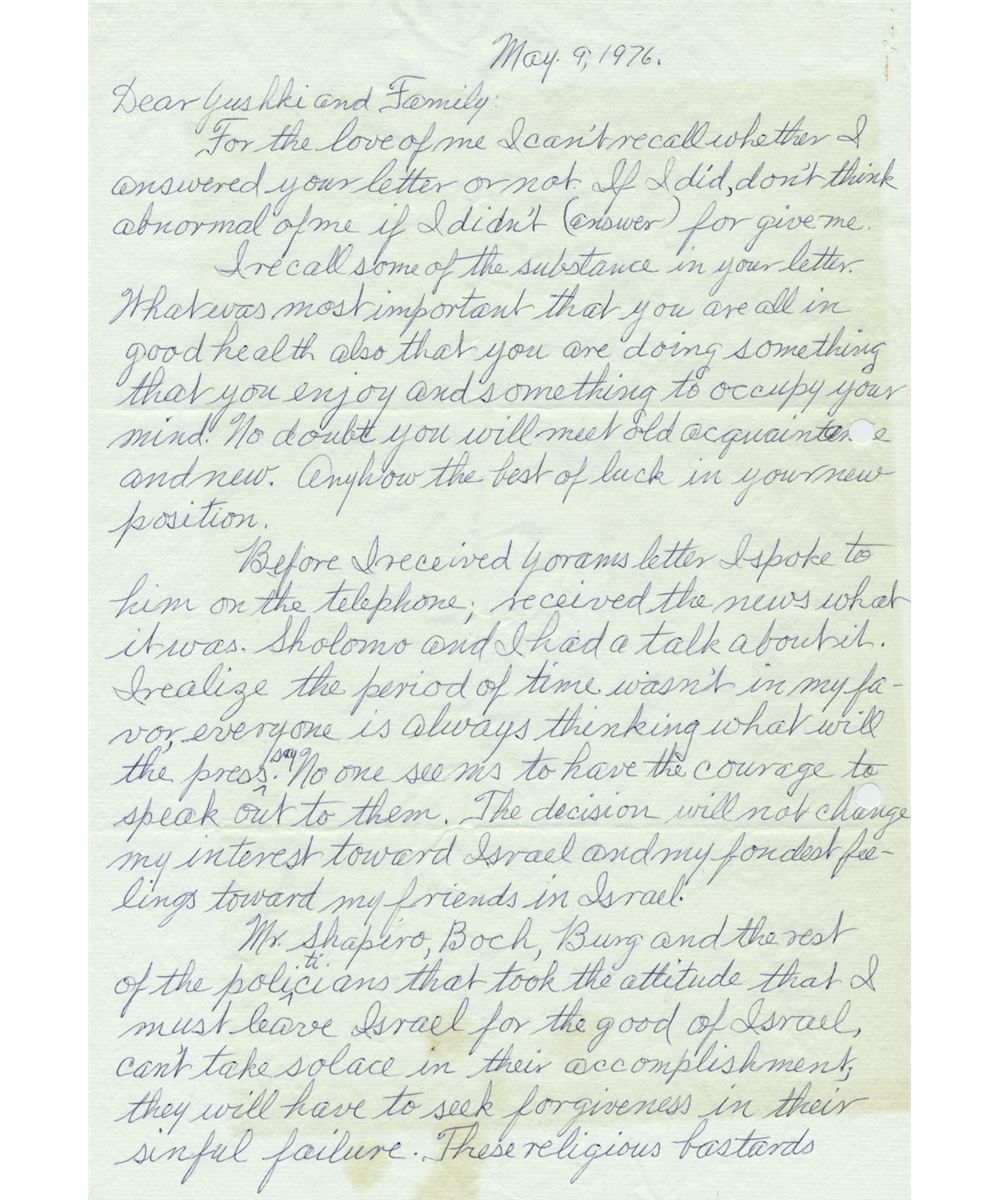 May 9, 1976.
Dear Yushki and Family:
For the love of me I can't recall whether I
answered your letter or not. If I did, don't think
abnormal of me if I didn't (answer) for give me.
I recall some of the substance in your letter.
What was most important that you are all in
good health also that you are doing something
that you enjoy and something to occupy your
mind. No doubt you will meet old acquaintance
and new. Anyhow the best of luck in your new
position.
Before I received Yorams letter I spoke to
him on the telephone; received the news what
it was. Sholomo and I had a talk about it.
I realize the period of time wasn't in my fa-
vor, everyone is always thinking what will
the press say. No one seems to have the courage to
speak out to them. The decision will not change
my interest toward Israel and my fondest fee-
lings toward my friends in Israel.
Mr. Shapiro, Boch, Burg and the rest
of the politicians that took the attitude that I
must leave Israel for the good of Israel,
can't take solace in their accomplishment;
they will have to seek forgiveness in their
sinful failure. These religious bastards